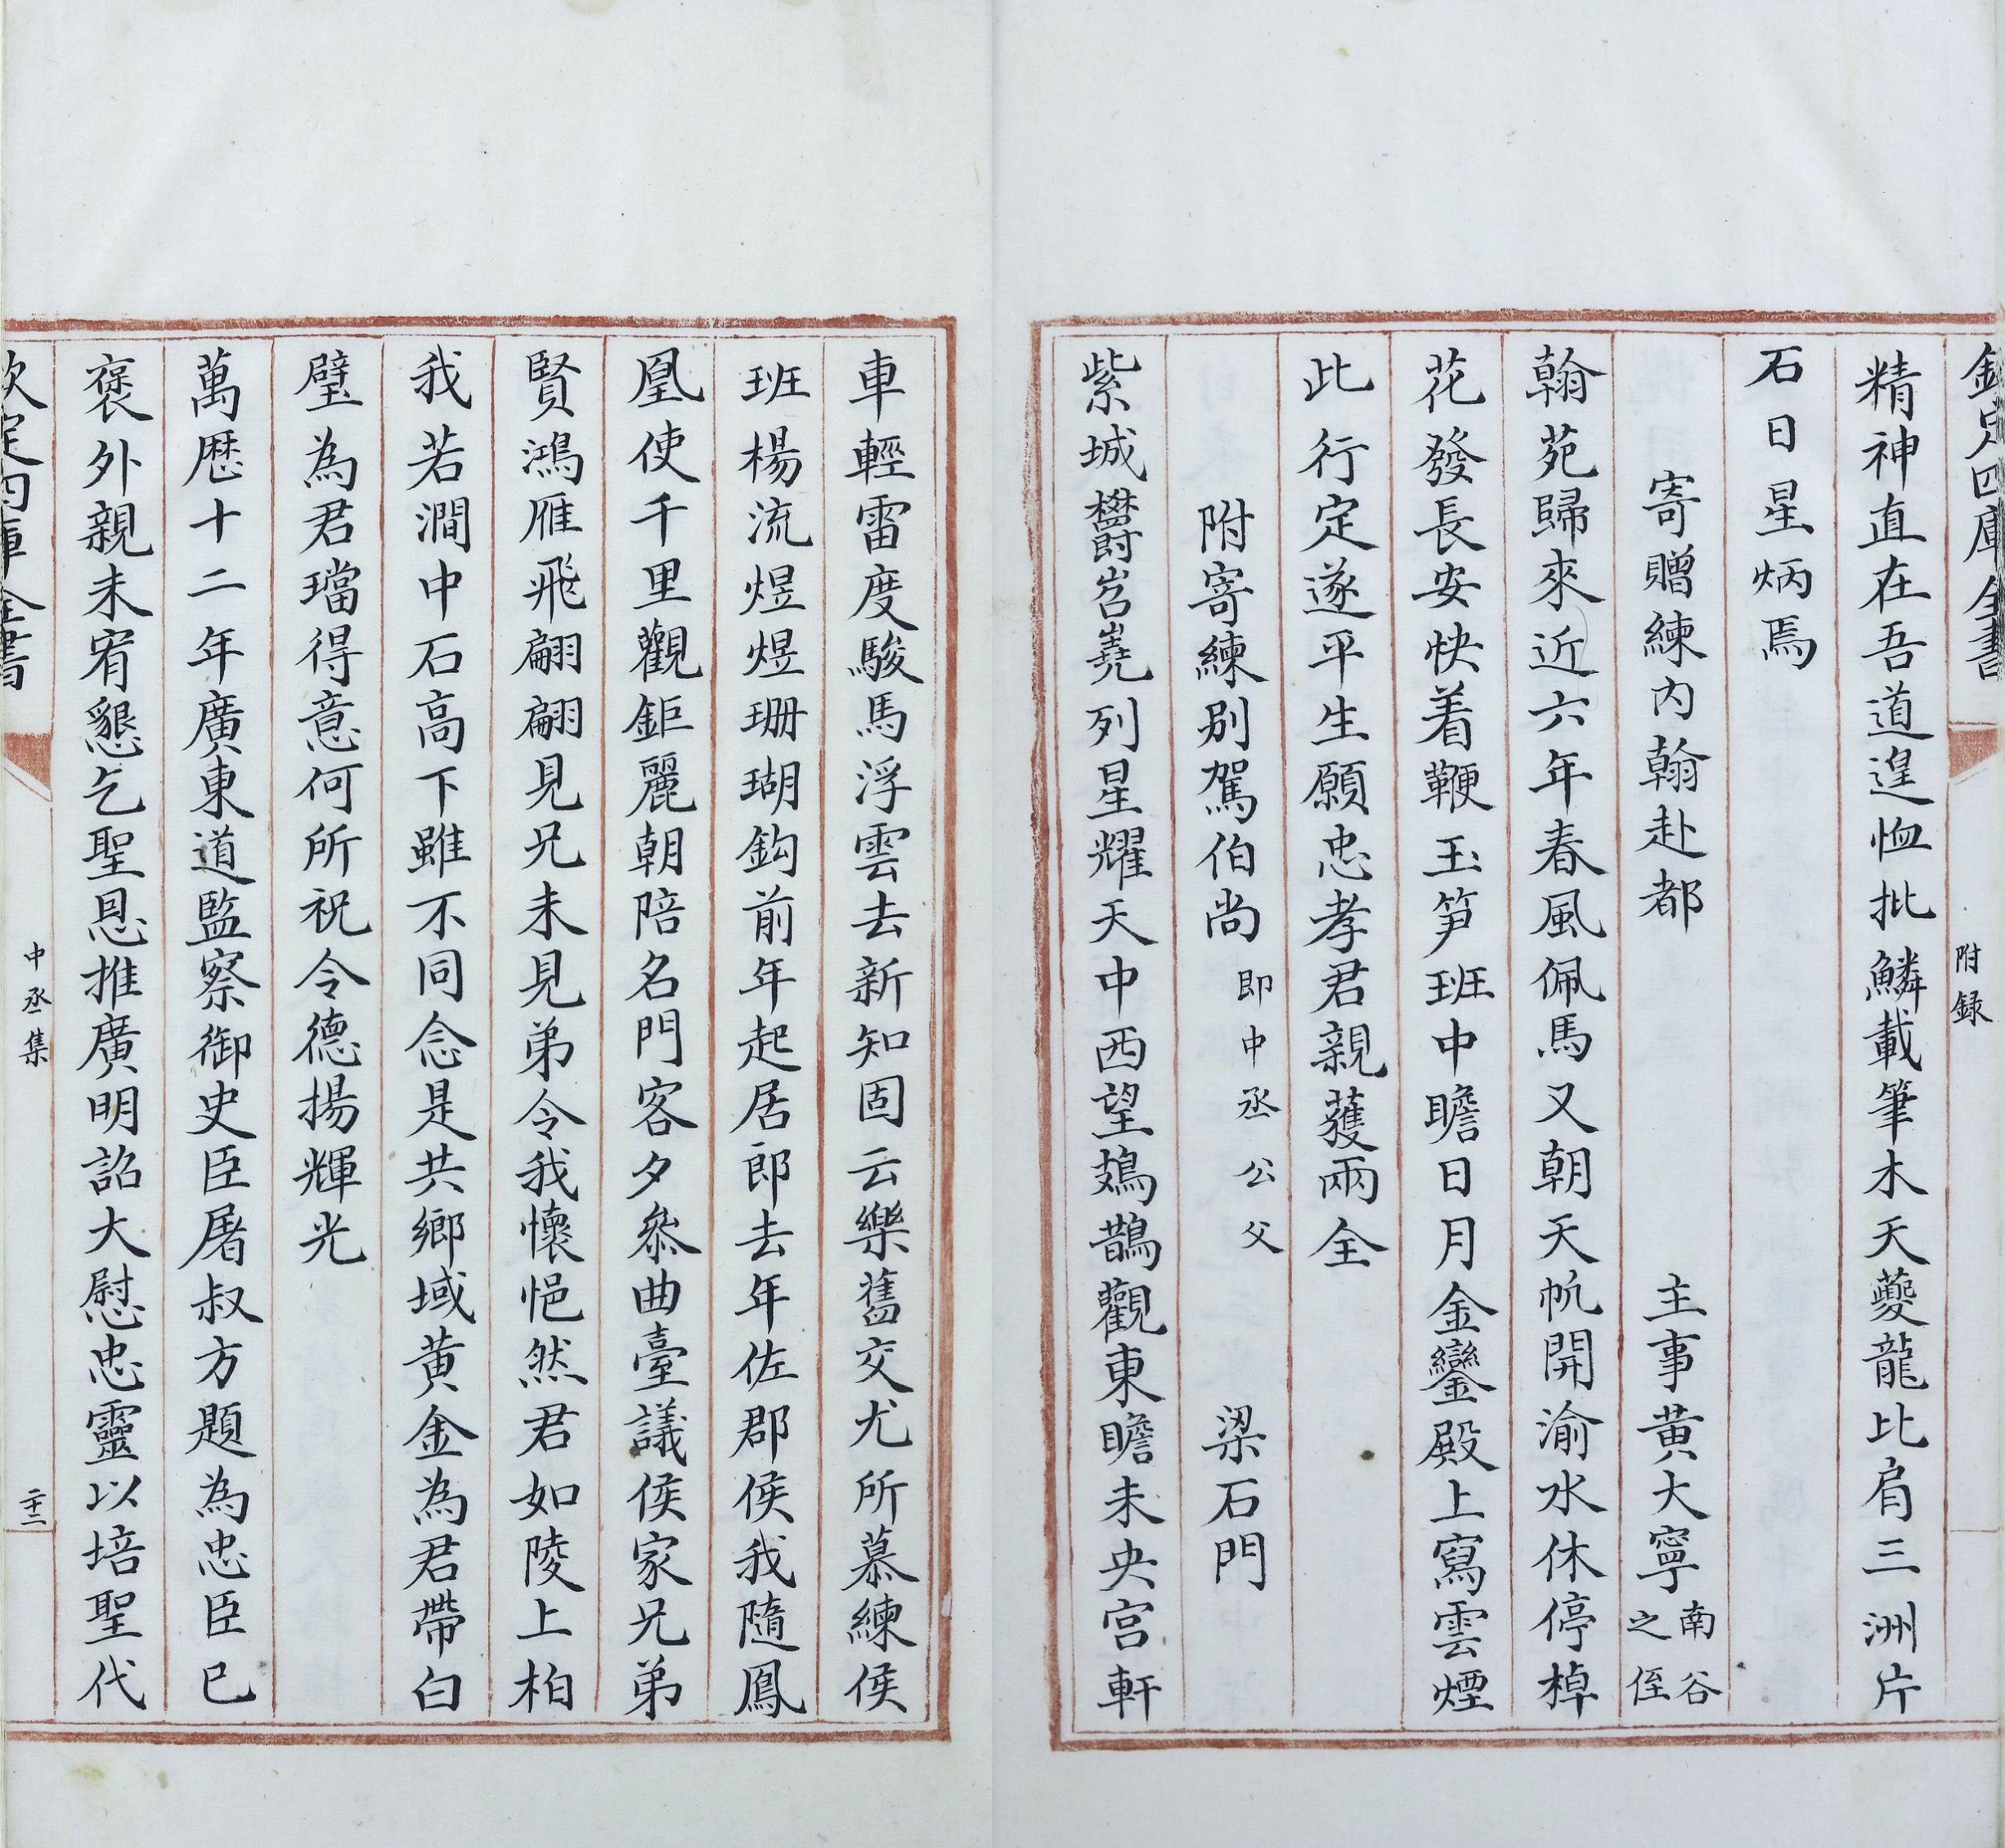 欽定四庫全書
附録
精神直在吾道遑恤批鱗載筆木天夔龍比肩三洲片
石日星炳焉
寄贈練内翰赴都 主事黄大寧南谷之侄
翰苑歸來近六年春風佩馬又朝天帆開渝水休停棹
花發長安快着鞭玉笋班中瞻日月金鑾殿上寫雲煙
此行定遂平生願忠孝君親獲兩全
附寄練别駕伯尚即中丞公父 梁石門
紫城欝岧嶤列星耀天中西望鳷鵲觀東瞻未央宫軒
車輕雷度駿馬浮雲去新知固云樂舊交尤所慕練侯
班楊流煜煜珊瑚鈎前年起居郎去年佐郡侯我隨鳳
凰使千里觀鉅麗朝陪名門客夕叅曲臺議侯家兄弟
賢鴻雁飛翩翩見兄未見弟令我懷悒然君如陵上柏
我若澗中石高下雖不同念是共鄉域黄金為君帶白
璧為君璫得意何所祝令德揚輝光
萬厯十二年廣東道監察御史臣屠叔方題為忠臣已
褒外親未宥懇乞聖恩推廣明詔大慰忠靈以培聖代
欽定四庫全書
中丞集
二十三